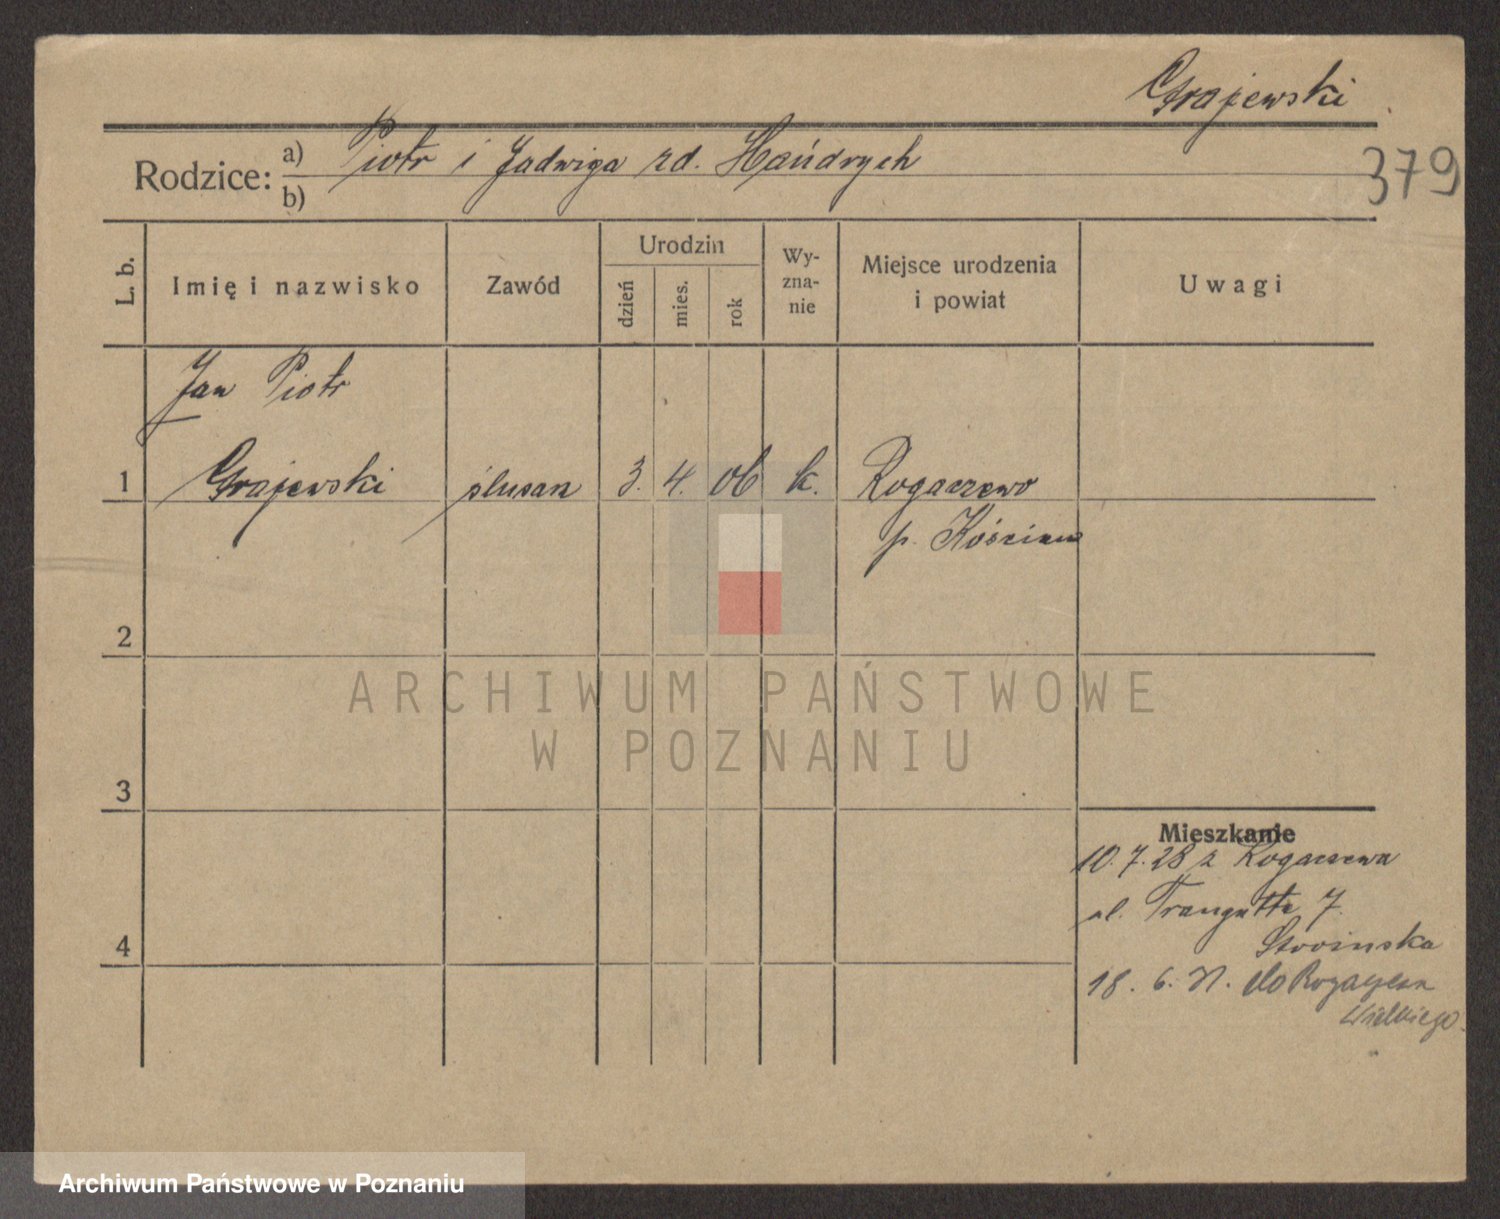 Grajewski
379
Rodzice: a) Piotr i Jadwiga zd. Hańdrych
b)
L. b.
Imię i nazwisko
Zawód
Urodzin
dzień
mies.
rok
Wy-
zna-
nie
Miejsce urodzenia
i powiat
Uwagi
Jan Piotr
1 Grajewski ślusarz 3. 4. 06 k. Rogaczewo
p. Kościan
2
3
4
Mieszkanie
10.7.28 z Rogaczewa
ul. Traugutta 7.
18. 6. do
Wielkiego
ARCHIWUM PAŃSTWOWE
W POZNANIU
Archiwum Państwowe w Poznaniu